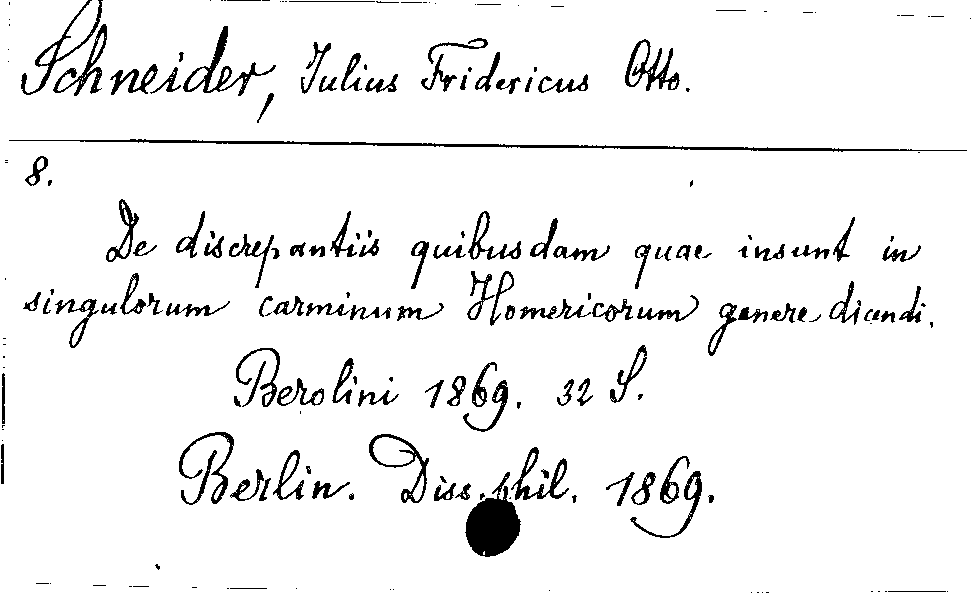 Schneider, Julius Fridericus Otto.
8.
De discrepantiis quibusdam quae insunt in
singulorum carminum Homericorum genere dicendi.
Berolini 1869. 32 S.
Berlin. Diss. phil. 1869.